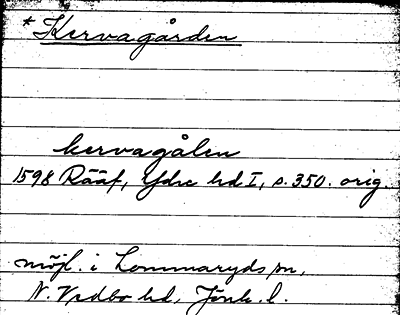 *Kervagården
kervagålen
1598 Rääf, Ydre hd I, s. 350. orig.
möjl. i Lommaryds sn,
N. Vedbo hd, Jönk. l.